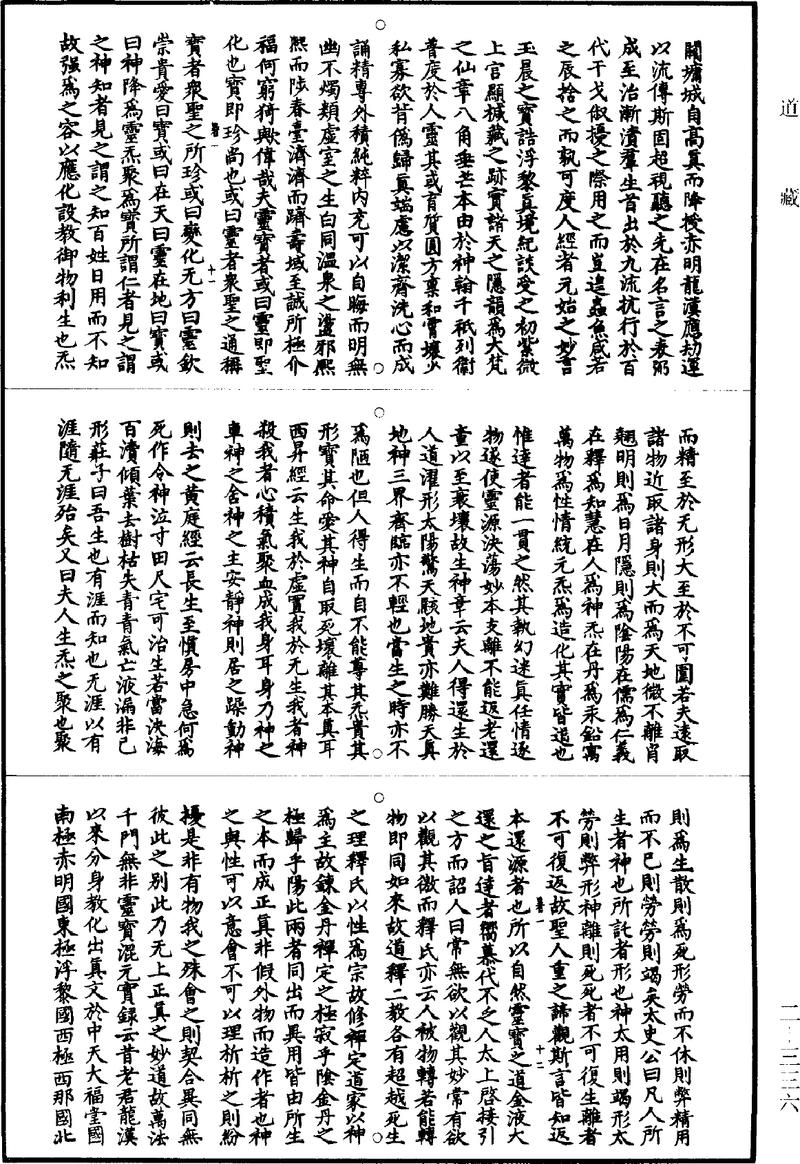 道藏
閬墉城自高真而降授亦明龍漢應劫運
以流傳斯固超視聽之先在名言之表弼
成至治漸漬羣生首出於九流抗行於百
代干戈俶擾之際用之而豈逭蟲魚感若
之辰捨之而孰可度人經者元始之妙言
玉晨之寶誥浮黎真境紀談受之初紫微
上官顯緘藏之跡實諸天之隱韻為大梵
之仙章八角垂芒本由於神翰千祇列衛
普度於人靈其或有質圓方稟和霄壤少
私寡欲背偽歸真端慮以潔齊洗心而成
誦精專外積純粹内充可以自晦而明無
幽不燭類虛室之生白同溫泉之盪邪熙
熙而陟春臺濟濟而躋壽域至誠所極介
福何窮猗歟偉哉夫靈寶者或曰靈即聖
化也寶即珍尚也或曰靈者衆聖之通稱
寶者衆聖之所珍或曰變化无方曰靈欽
崇貴愛曰寶或曰在天曰靈在地曰寶或
曰神降為靈炁聚為寶所謂仁者見之謂
之神知者見之謂之知百姓日用而不知
故强為之容以應化設教御物利生也炁
而精至於无形大至於不可圍若夫遠取
諸物近取諸身則大而為天地微不離肖
翹明則為日月隱則為陰陽在儒為仁義
在釋為知慧在人為神炁在丹為汞鉛寓
萬物為性情統元炁為造化其實皆道也
惟達者能一貫之然其執幻迷真任情逐
物遂使靈源決蕩妙本支離不能返老還
童以至衰壞故生神章云夫人得還生於
人道濯形太陽驚天駭地貴亦難勝天真
地神三界齊臨亦不輕也當生之時亦不
為陋也但人得生而自不能尊其炁貴其
形寶其命愛其神自取死壞離其本真耳
西昇經云生我於虛置我於无生我者神
殺我者心積氣聚血成我身耳身乃神之
車神之舍神之主安靜神則居之躁動神
則去之黃庭經云長生至慎房中急何為
死作令神泣寸田尺宅可治生若當決海
百瀆傾葉去樹枯失青青氣亡液漏非己
形莊子曰吾生也有涯而知也无涯以有
涯隨无涯殆矣又曰夫人生炁之聚也聚
則為生散則為死形勞而不休則弊精用
而不已則勞勞則竭矣太史公曰凡人所
生者神也所託者形也神太用則竭形太
勞則弊形神離則死死者不可復生離者
不可復返故聖人重之諦觀斯言皆知返
本還源者也所以自然靈寶之道金液大
還之旨達者嚮慕代不乏人太上啓接引
之方而詔人曰常無欲以觀其妙常有欲
以觀其徼而釋氏亦云人被物轉若能轉
物即同如來故道釋二教各有超越死生
之理釋氏以性為宗故修禪定道家以神
為主故鍊金丹禪定之極寂乎陰金丹之
極歸乎陽此兩者同出而異用皆由所生
之本而成正真非假外物而造作者也神
之與性可以意會不可以理析析之則紛
擾是非有物我之殊會之則契合異同無
彼此之別此乃无上正真之妙道故萬法
千門無非靈寶混元實録云昔老君龍漢
以來分身教化出真文於中天大福堂國
南極赤明國東極浮黎國西極西那國北
二-三三六